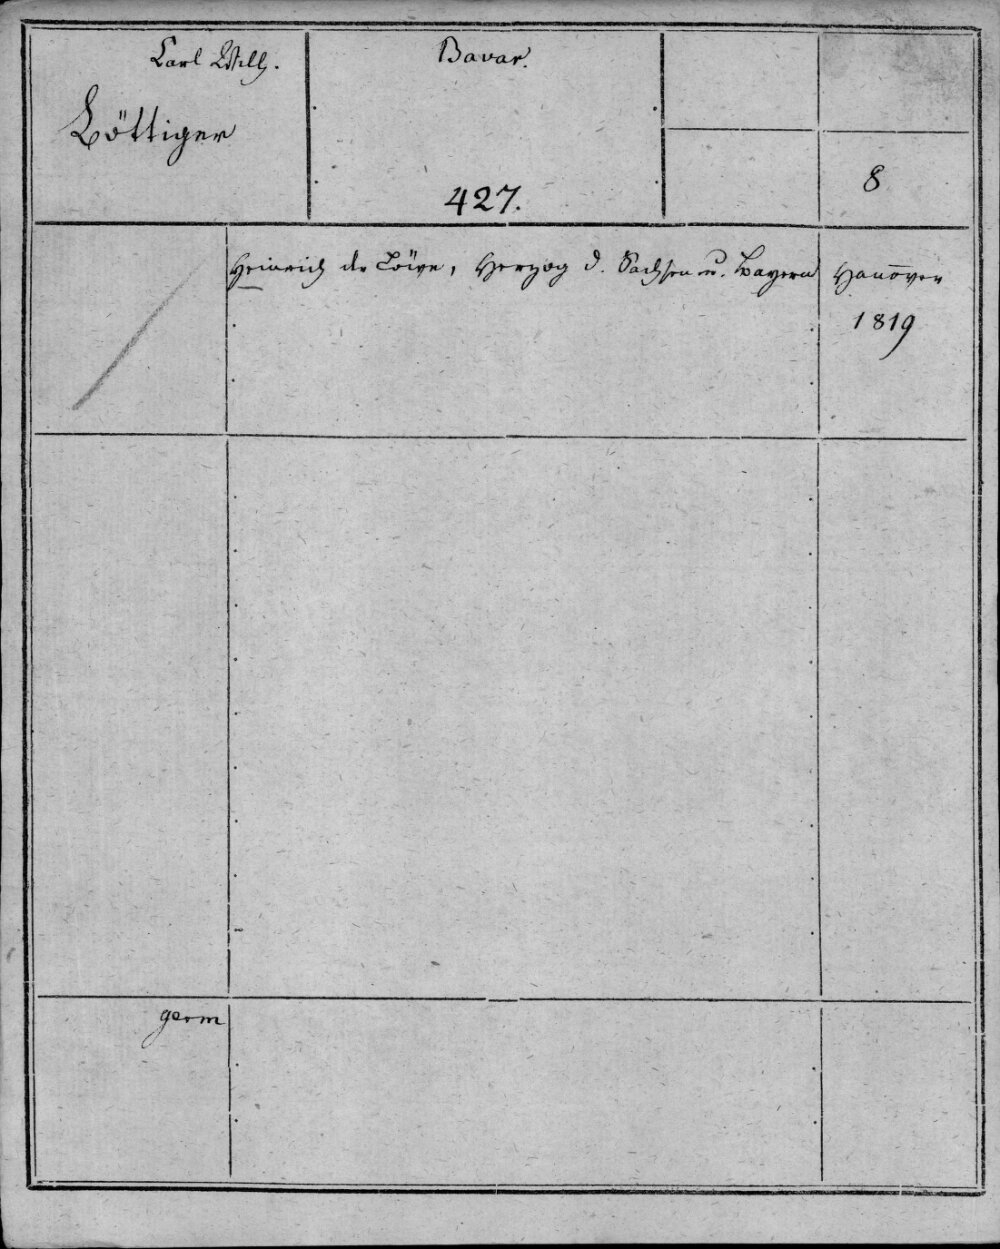 Carl Wilh.
Böttiger
Bavar.
427.
8
Heinrich der Löwe, Herzog d. Sachsen u. Bayern
Hanover
1819
germ